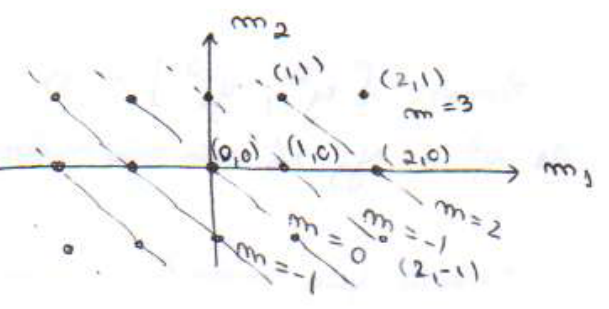 m2
(1,1)
(2,1)
m=3
(0,0)
(1,0)
(2,0)
m1
m=2
m=-1
m=0
(2,-1)
m=-1